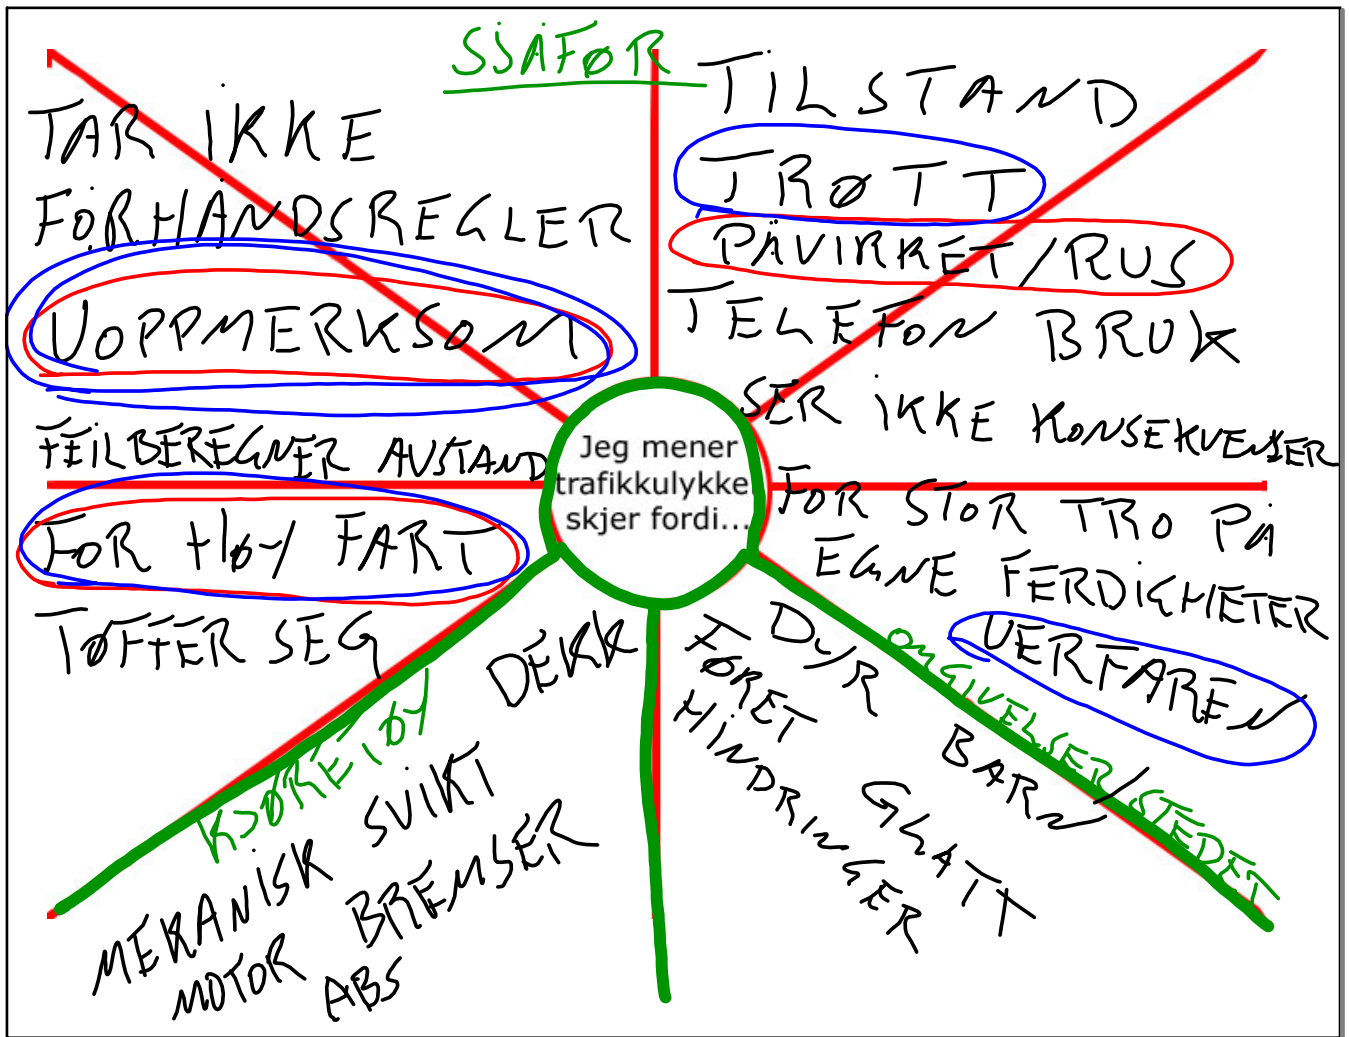 SJÅFØR
TAR IKKE
FORHÅNDSREGLER
UOPPMERKSOM
FEILBEREGNER AVSTAND
FOR HØY FART
TØFFER SEG
TILSTAND
TRØTT
PÅVIRKET/RUS
TELEFON BRUK
SER IKKE KONSEKVENSER
FOR STOR TRO PÅ
EGNE FERDIGHETER
UERFAREN
Jeg mener
trafikkulykke
skjer fordi...
KJØRETØY
DEKK
MEKANISK SVIKT
MOTOR BREMSER
ABS
OMGIVELSER/STEDET
DYR
BARN
FØRET
GLATT
HINDRINGER